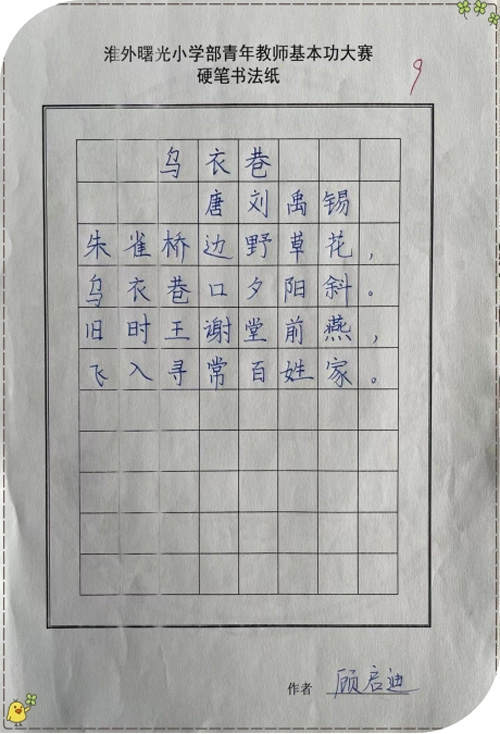 淮外曙光小学部青年教师基本功大赛
硬笔书法纸
9
乌衣巷
唐刘禹锡
朱雀桥边野草花，
乌衣巷口夕阳斜。
旧时王谢堂前燕，
飞入寻常百姓家。
作者 顾启迪